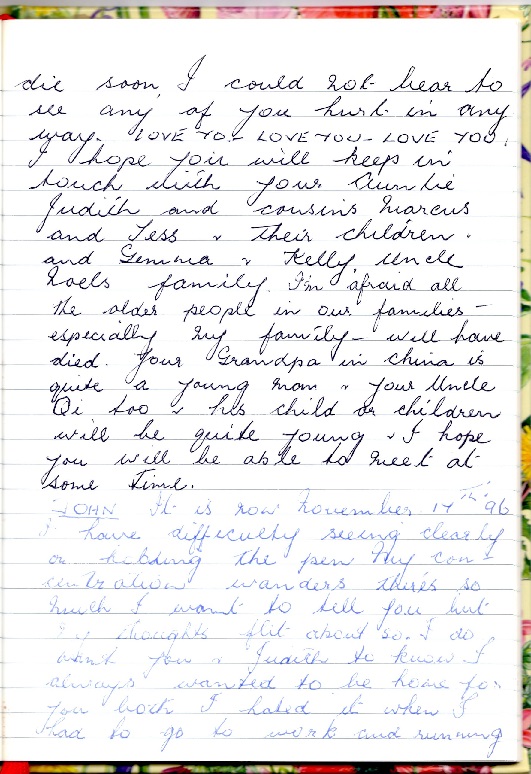 die soon, I could not bear to
see any of you hurt in any
way. LOVE YOU LOVE YOU - LOVE YOU.
I hope you will keep in
touch with your Auntie
Judith and cousins Marcus
and Tess & their children.
and Gemma & Kelly, Uncle
Noels family. I'm afraid all
the older people in our families -
especially my family - will have
died. Your Grandpa in China is
quite a young man & your Uncle
Qi too & his child or children
will be quite young & I hope
you will be able to meet at
some time.
JOHN It is now November 17th '96
I have difficulty seeing clearly
or holding the pen My con-
centration wanders theres so
much I want to tell you but
my thoughts flit about so. I do
want you & Judith to know I
always wanted to be home for
you both I hated it when I
had to go to work and running